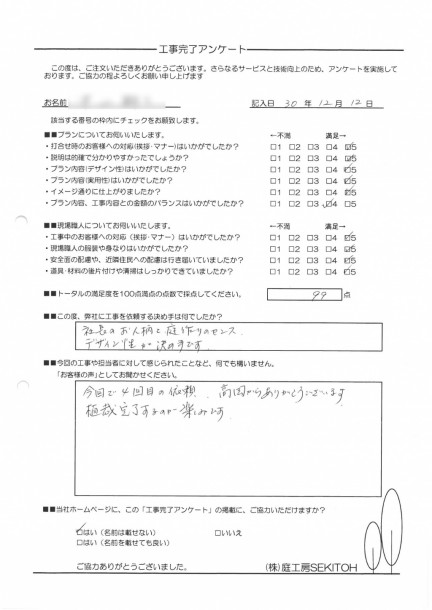 工事完了アンケート
この度は、ご注文いただきありがとうございます。さらなるサービスと技術向上のため、アンケートを実施して
おります。ご協力の程よろしくお願い申し上げます
お名前 記入日 30年 12月 12日
該当する番号の枠内にチェックをお願致します。
■■プランについてお伺いいたします。 ←不満 満足→
・打合せ時のお客様への対応(挨拶・マナー)はいかがでしたか? □1 □2 □3 □4 ☑5
・説明は的確で分かりやすかったでしょうか? □1 □2 □3 □4 ☑5
・プラン内容(デザイン性)はいかがでしたか? □1 □2 □3 □4 ☑5
・プラン内容(実用性)はいかがでしたか? □1 □2 □3 □4 ☑5
・イメージ通りに仕上がりましたか? □1 □2 □3 □4 ☑5
・プラン内容、工事内容との金額のバランスはいかがですか? □1 □2 □3 ☑4 □5
■■現場職人についてお伺いいたします。 ←不満 満足→
・工事中のお客様への対応(挨拶・マナー)はいかがでしたか? □1 □2 □3 □4 ☑5
・現場職人の服装や身なりはいかがでしたか? □1 □2 □3 □4 ☑5
・安全面の配慮や、近隣住民への配慮は行き届いていましたか? □1 □2 □3 □4 ☑5
・道具・材料の後片付けや清掃はしっかりできていましたか? □1 □2 □3 □4 ☑5
■■トータルの満足度を100点満点の点数で採点してください。 99 点
■■この度、弊社に工事を依頼する決め手は何でしたか?
社長のお人柄と庭作りのセンス、
デザイン性が決め手です
■■今回の工事や担当者に対して感じられたことなど、何でも構いません。
「お客様の声」としてお聞かせください。
今回で4回目の依頼、高岡からありがとうございます
植栽完了するのが楽しみです。
■■当社ホームページに、この「工事完了アンケート」の掲載に、ご協力いただけますか?
☑はい(名前は載せない) □いいえ
□はい(名前を載せても良い)
ご協力ありがとうございました。 (株)庭工房SEKITOH